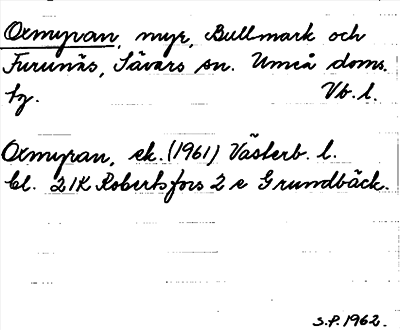 Oxmyran, myr, Bullmark och
Furunäs, Sävars sn. Umeå doms.
tg. Vb. l.
Oxmyran, ek. (1961) Västerb. l.
bl. 21K Robertsfors 2 e Grundbäck.
S.P. 1962.